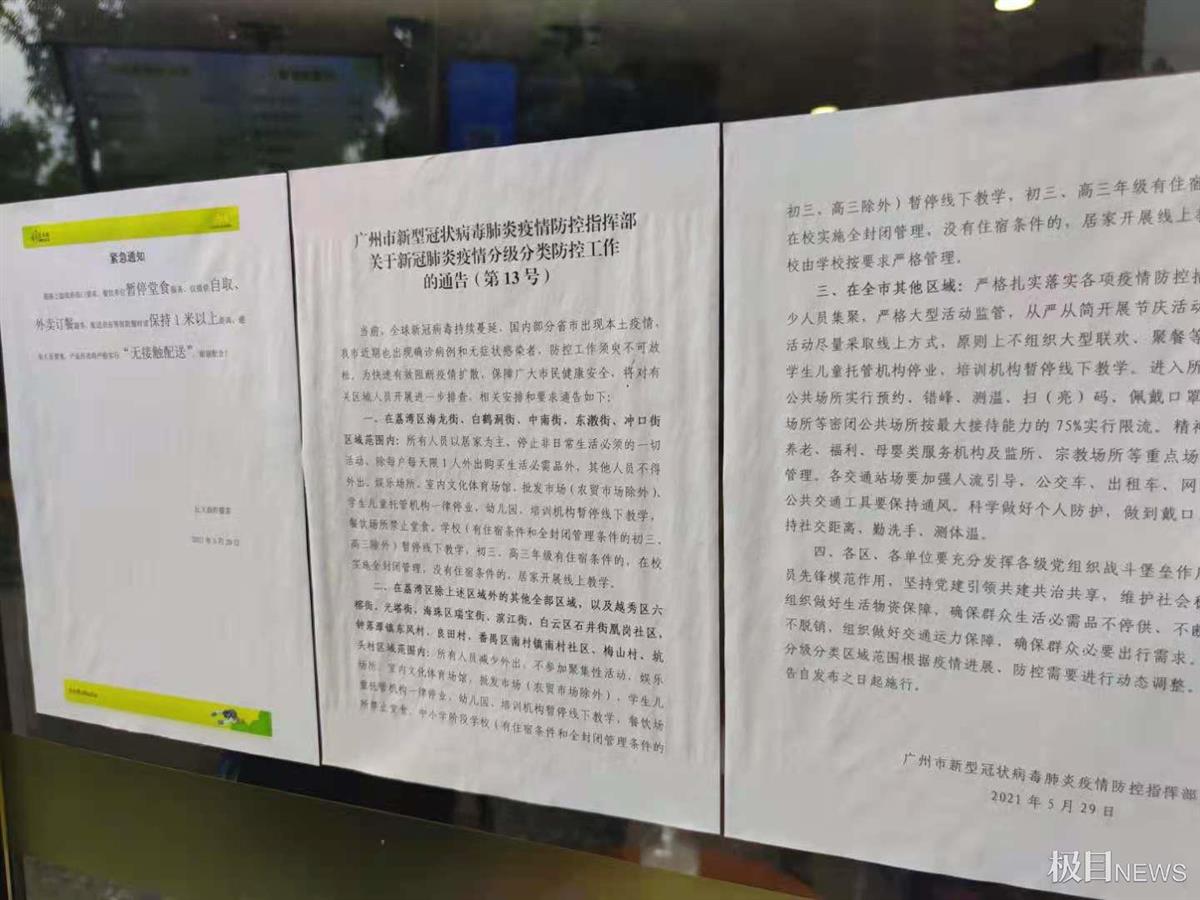 紧急通知
暂停堂食服务，仅提供自取、
外卖订餐服务，保持1米以上距离，避
“无接触配送”，谢谢配合！
2021年5月29日
广州市新型冠状病毒肺炎疫情防控指挥部
关于新冠肺炎疫情分级分类防控工作
的通告（第13号）
当前，全球新冠病毒持续蔓延，国内部分省市出现本土疫情，
我市近期也出现确诊病例和无症状感染者，防控工作须臾不可放
松。为快速有效阻断疫情扩散，保障广大市民健康安全，将对有
关区域人员开展进一步排查，相关安排和要求通告如下：
一、在荔湾区海龙街、白鹤洞街、中南街、东漖街、冲口街
区域范围内：所有人员以居家为主，停止非日常生活必须的一切
活动，除每户每天限1人外出购买生活必需品外，其他人员不得
外出。娱乐场所、室内文化体育场馆、批发市场（农贸市场除外）、
学生儿童托管机构一律停业，幼儿园、培训机构暂停线下教学，
餐饮场所禁止堂食。学校（有住宿条件和全封闭管理条件的初三、
高三除外）暂停线下教学，初三、高三年级有住宿条件的，在校
实施全封闭管理，没有住宿条件的，居家开展线上教学。
二、在荔湾区除上述区域外的其他全部区域，以及越秀区六
榕街、光塔街，海珠区瑞宝街、滨江街，白云区石井街凰岗社区、
钟落潭镇东凤村、良田村，番禺区南村镇南村社区、梅山村、坑
头村区域范围内：所有人员减少外出，不参加聚集性活动。娱乐
场所、室内文化体育场馆、批发市场（农贸市场除外）、学生儿
童托管机构一律停业，幼儿园、培训机构暂停线下教学，餐饮场
所禁止堂食。中小学阶段学校（有住宿条件和全封闭管理条件的
初三、高三除外）暂停线下教学，初三、高三年级有住宿
在校实施全封闭管理，没有住宿条件的，居家开展线上教
校由学校按要求严格管理。
三、在全市其他区域：严格扎实落实各项疫情防控措
少人员集聚，严格大型活动监管，从严从简开展节庆活
活动尽量采取线上方式，原则上不组织大型联欢、聚餐等
学生儿童托管机构停业，培训机构暂停线下教学。进入所
公共场所实行预约、错峰、测温、扫（亮）码、佩戴口罩
场所等密闭公共场所按最大接待能力的75%实行限流。精神
养老、福利、母婴类服务机构及监所、宗教场所等重点场
管理。各交通站场要加强人流引导，公交车、出租车、网
公共交通工具要保持通风。科学做好个人防护，做到戴口
持社交距离，勤洗手、测体温。
四、各区、各单位要充分发挥各级党组织战斗堡垒作用
员先锋模范作用，坚持党建引领共建共治共享，维护社会稳
组织做好生活物资保障，确保群众生活必需品不停供、不断
不脱销，组织做好交通运力保障，确保群众必要出行需求。
分级分类区域范围根据疫情进展、防控需要进行动态调整。
告自发布之日起施行。
广州市新型冠状病毒肺炎疫情防控指挥部
2021年5月29日
极目NEWS